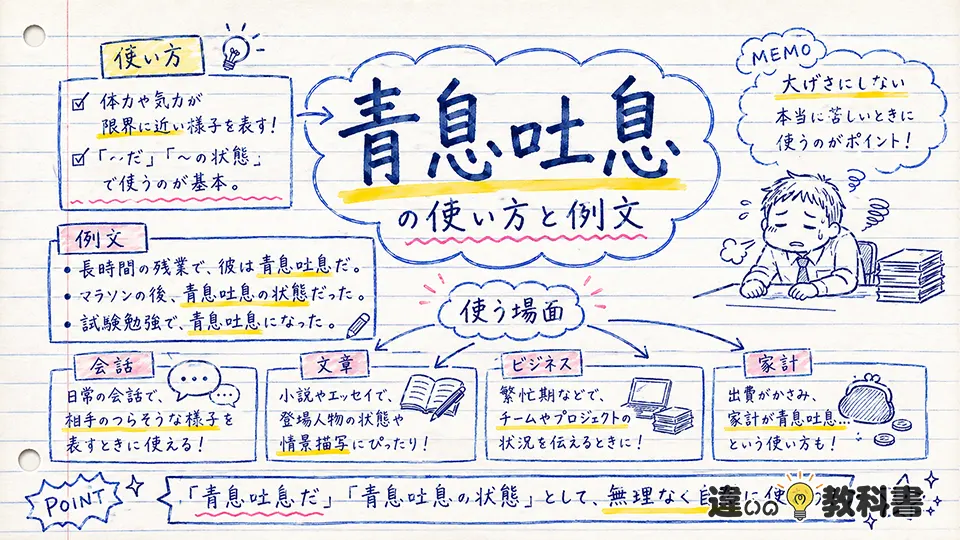 使い方
体力や気力が
限界に近い様子を表す!
「〜だ」「〜の状態」
で使うのが基本。
青息吐息
の使い方と例文
MEMO
大げさにしない
本当に苦しいときに
使うのがポイント!
例文
・長時間の残業で、彼は青息吐息だ。
・マラソンの後、青息吐息の状態だった。
・試験勉強で、青息吐息になった。
使う場面
会話
日常の会話で、
相手のつらそうな様子を
表すときに使える!
文章
小説やエッセイで、
登場人物の状態や
情景描写にぴったり!
ビジネス
繁忙期などで、
チームやプロジェクトの
状況を伝えるときに!
家計
出費がかさみ、
家計が青息吐息…
という使い方も!
POINT
「青息吐息だ」「青息吐息の状態」として、無理なく
違いの教科書